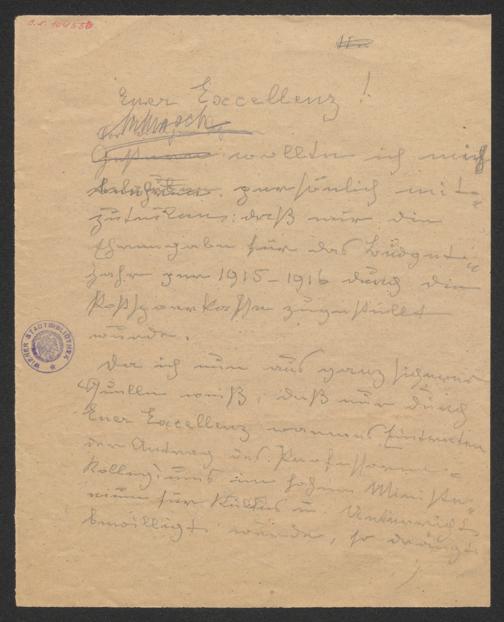 Euer Excellenz!
wollte ich mich
persönlich mit-
zuteilen: daß mir die
Ehrengabe für das Budget-
jahr per 1915-1916 durch die
Postsparkasse zugestellt
wurde.
Da ich nun aus ganz sicherer
Quelle weiß, daß nur durch
Euer Excellenz warmes Eintreten
der Antrag des Professoren-
Kollegiums im hohen Ministe-
rium für Kultus u Unterricht
bewilligt wurde, so drängt
WIENER STADTBIBLIOTHEK